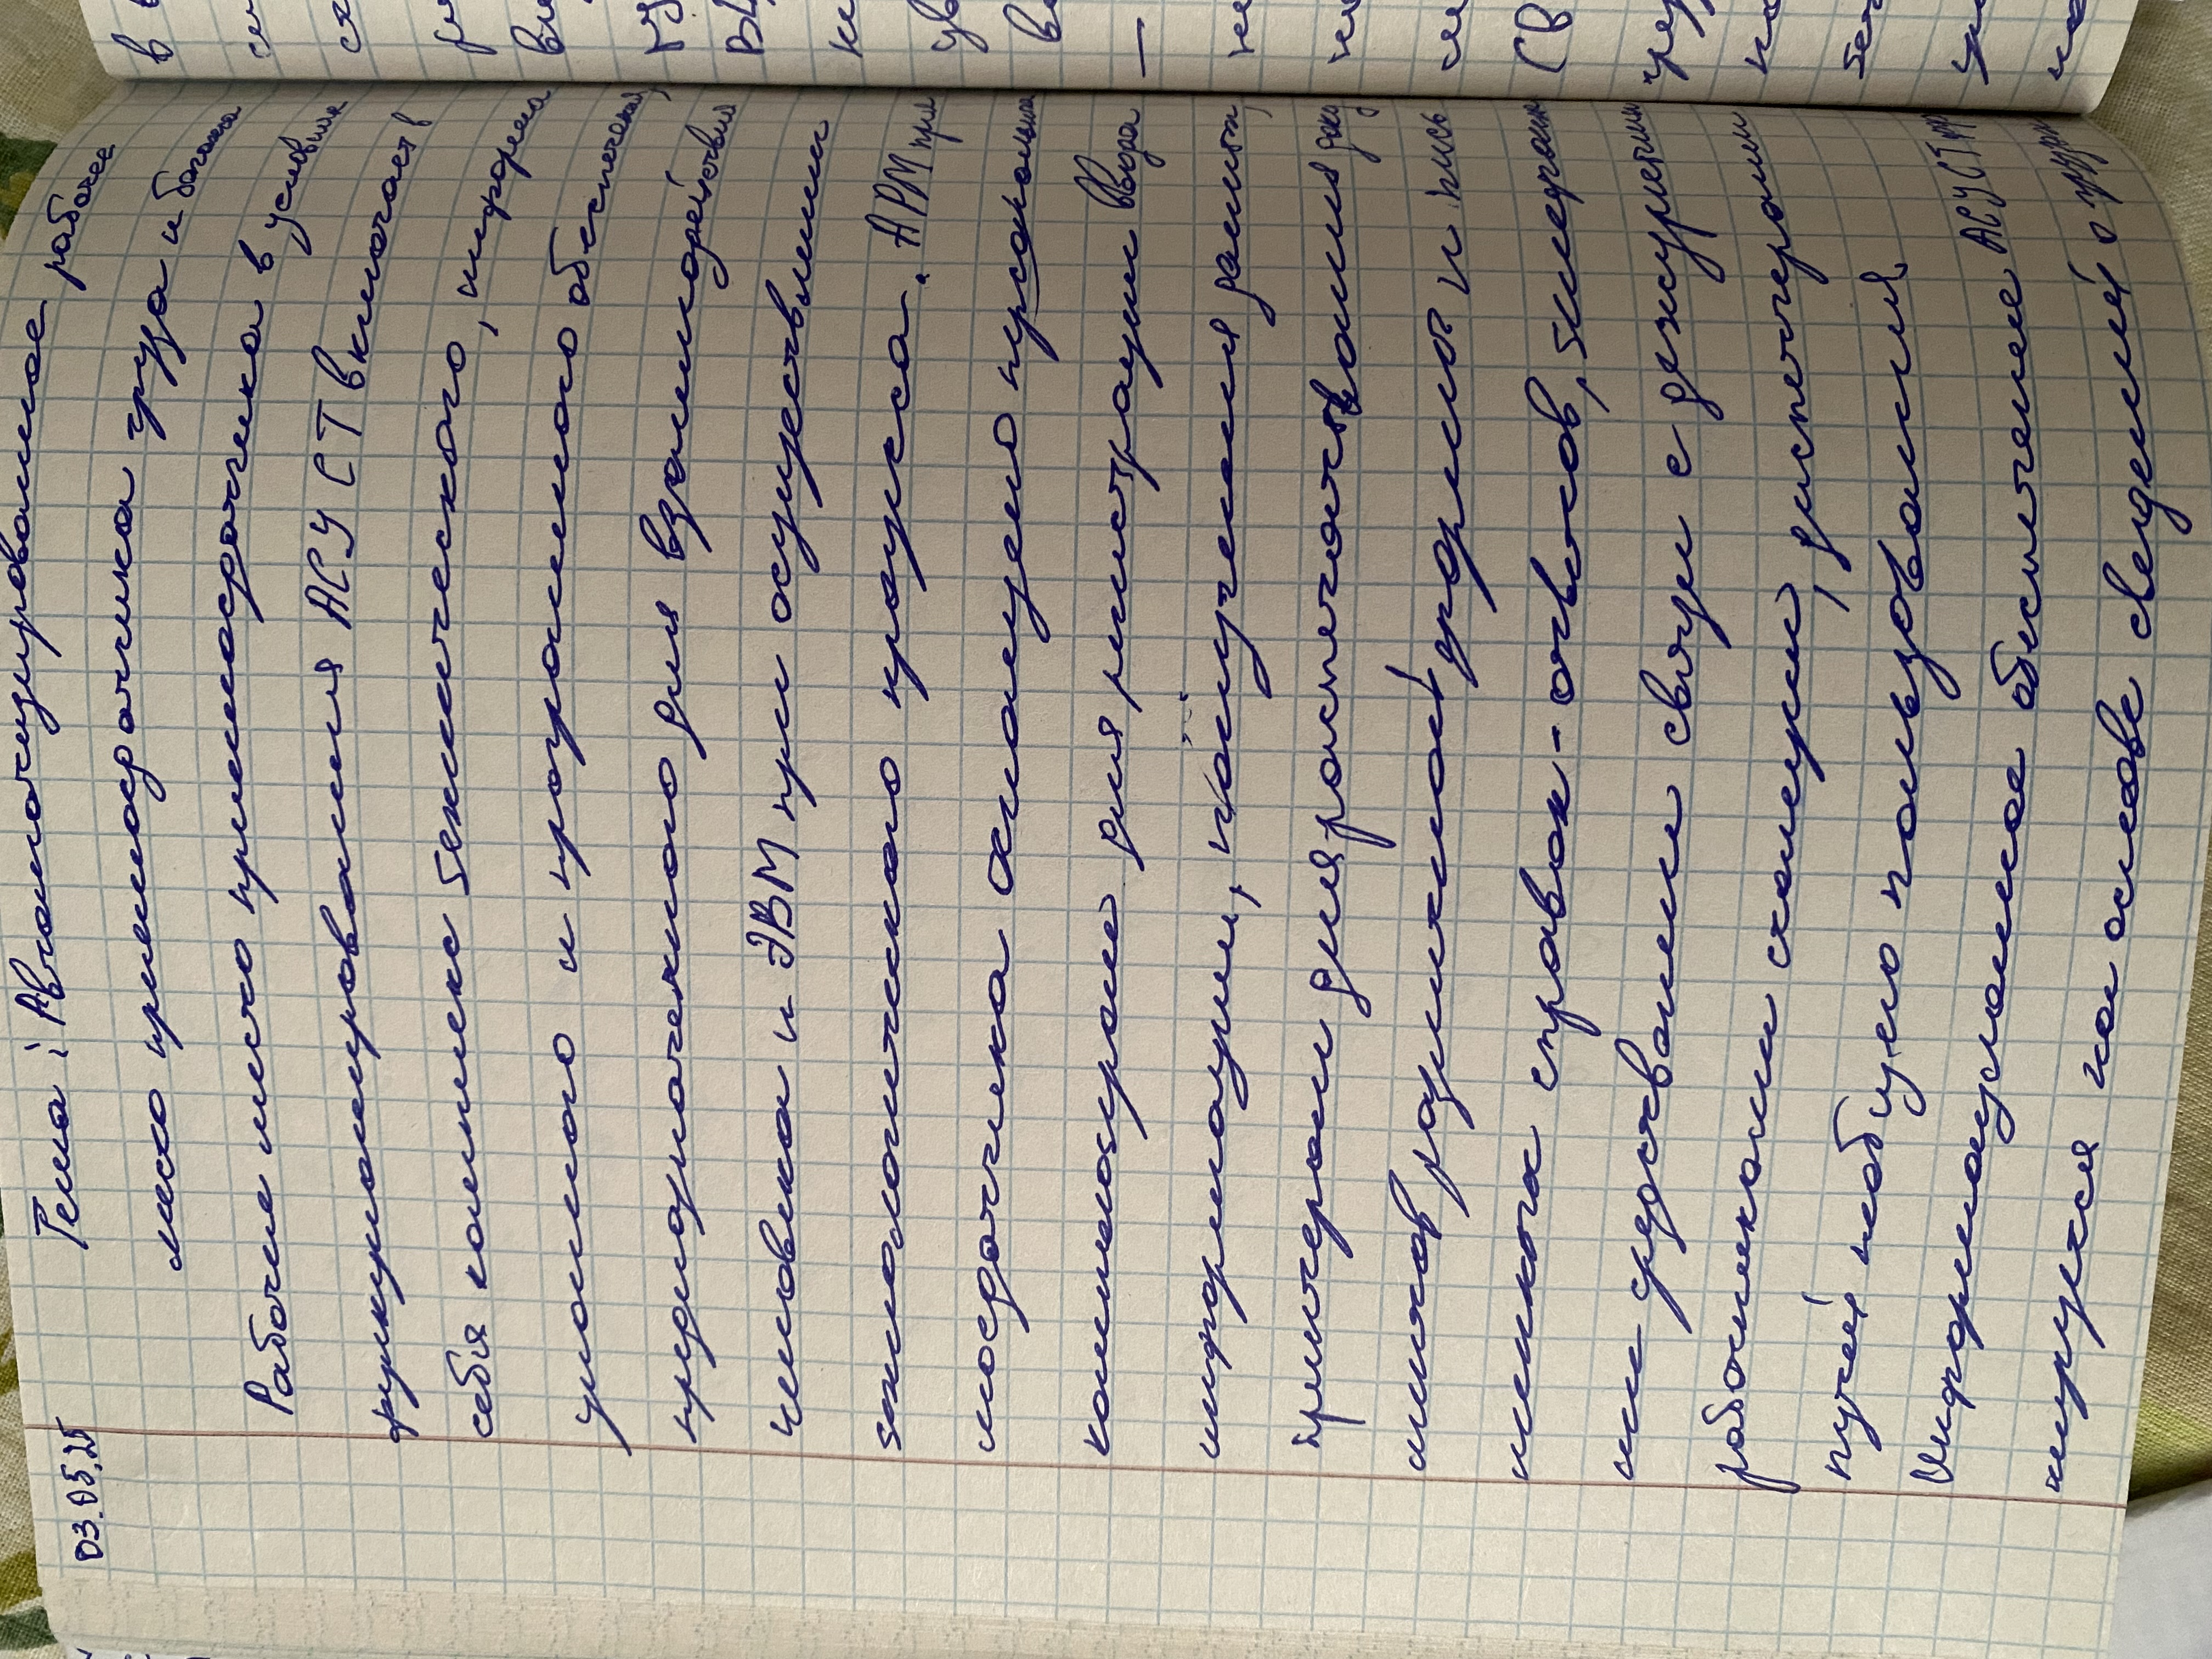 03.05.25
Тема: Автоматизированное рабочее
место приемосдатчика груза и багажа
Рабочее место приемосдатчика в условиях
функционирования АСУ СТ включает в
себя комплекс технического, информа
ционного и программного обеспечения,
предназначенного для взаимодействия
человека и ЭВМ при осуществлении
технологического процесса. АРМ прие
мосдатчика оснащено персональным
компьютером для регистрации ввода
информации, получения данных,
принтером для распечатывания доку
ментов различной формы и
справок-ответов, телеграфн
ми средствами связи с дежурными
работниками станции, диспетчером
путей необщего пользования
Информационное обеспечение АСУ СТ
на основе сведений о
в
—
(в